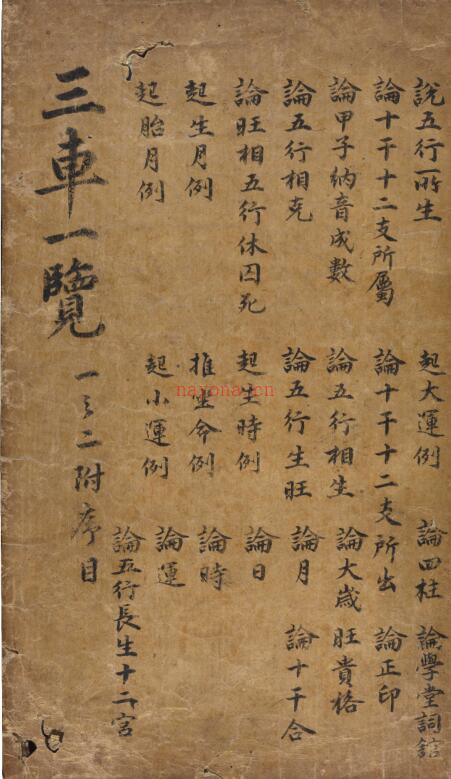 說五行所生　起大運例　論四柱　論學堂詞舘
論十干十二支所屬　論十干十二支所出　論正印
論甲子納音成數　論五行相生　論大歲　旺貴格
論五行相克　論五行生旺　論月　論十干合
論旺相五行休囚死　起生時例　論日
起生月例　推坐命例　論時
起胎月例　起小運例　論運
論五行長生十二宮
三車一覽　一之二附序目
nayona.cn